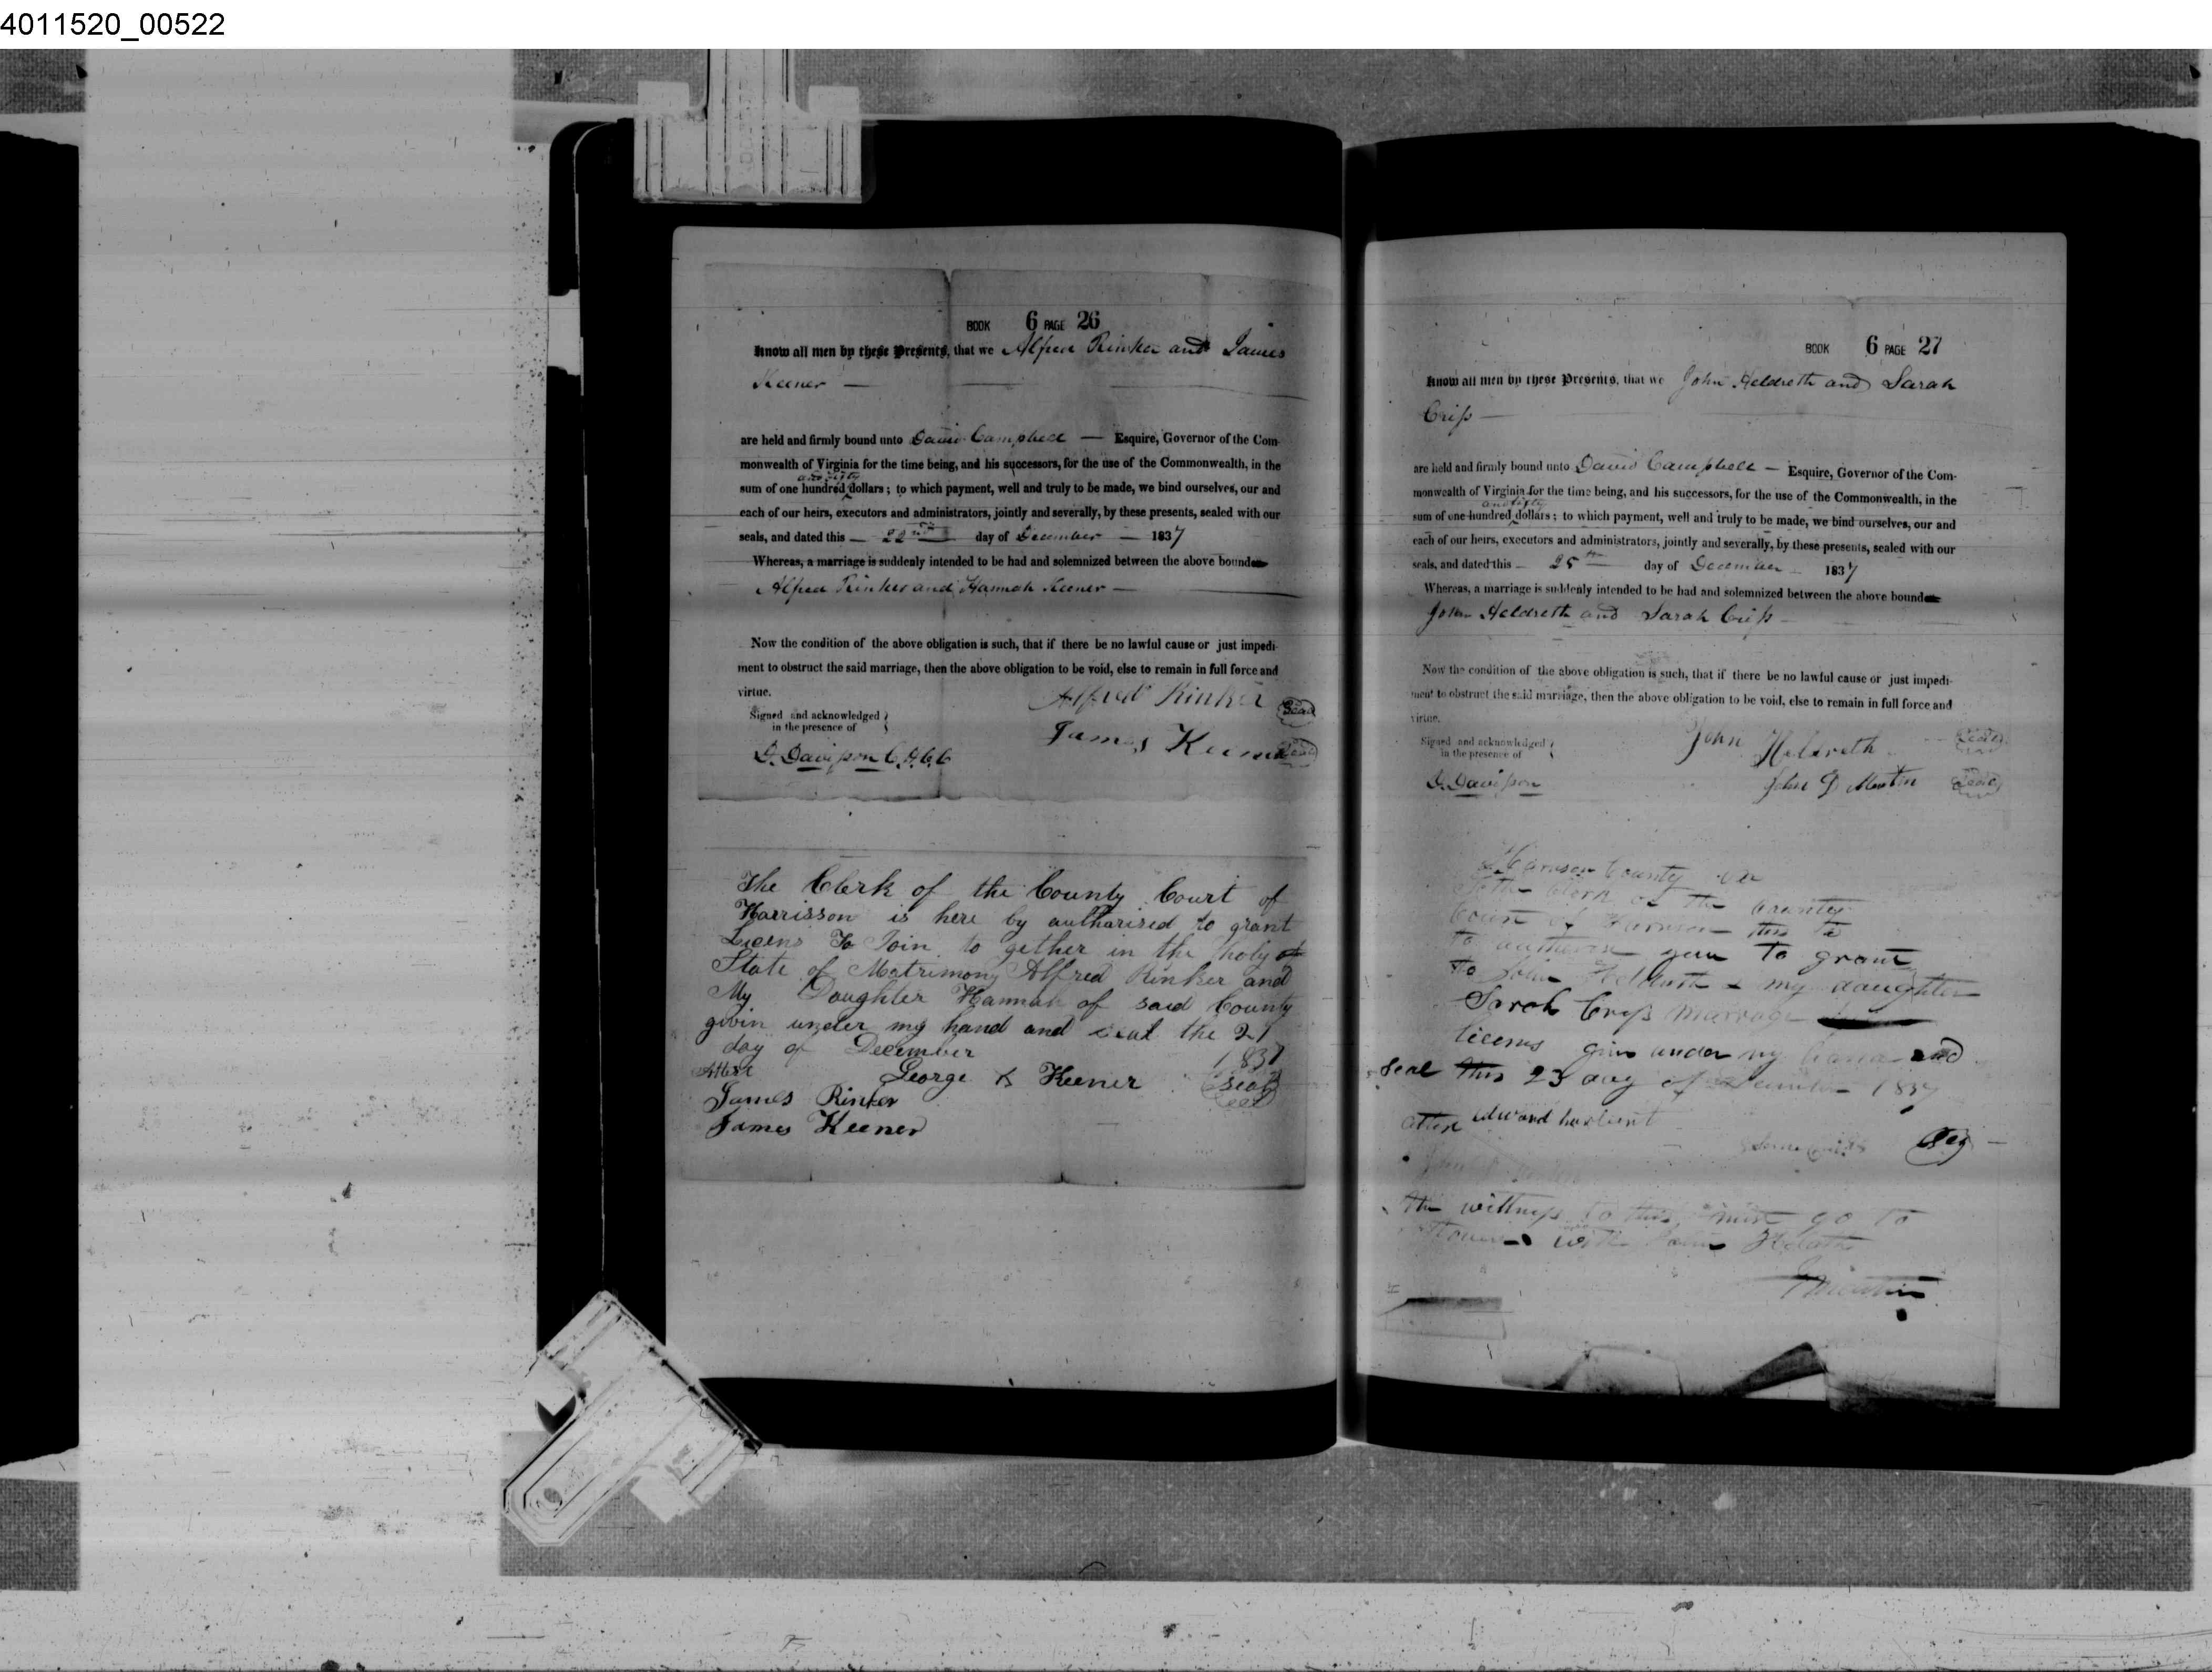 4011520_00522
BOOK 6 PAGE 26
Know all men by these Presents, that we Alfred Rinker and James
Keener —
are held and firmly bound unto David Campbell — Esquire, Governor of the Com-
monwealth of Virginia for the time being, and his successors, for the use of the Commonwealth, in the
and fifty
sum of one hundred dollars; to which payment, well and truly to be made, we bind ourselves, our and
each of our heirs, executors and administrators, jointly and severally, by these presents, sealed with our
seals, and dated this — 22nd day of December — 1837
Whereas, a marriage is suddenly intended to be had and solemnized between the above bound
Alfred Rinker and Hannah Keener —
Now the condition of the above obligation is such, that if there be no lawful cause or just impedi-
ment to obstruct the said marriage, then the above obligation to be void, else to remain in full force and
virtue.
Alfred Rinker Seal
Signed and acknowledged
in the presence of
James Keener Seal
D. Davisson C.H.C.C
The Clerk of the County Court of
Harrisson is here by autharised to grant
Licens To Join to gether in the holy
State of Matrimony Alfred Rinker and
My Daughter Hannah of said County
givin under my hand and seal the 21
day of December 1837
Attest George X Keener Seal
James Rinker
James Keener
BOOK 6 PAGE 27
Know all men by these Presents, that we John Heldreth and Sarah
Criss —
are held and firmly bound unto David Campbell — Esquire, Governor of the Com-
monwealth of Virginia for the time being, and his successors, for the use of the Commonwealth, in the
and fifty
sum of one hundred dollars; to which payment, well and truly to be made, we bind ourselves, our and
each of our heirs, executors and administrators, jointly and severally, by these presents, sealed with our
seals, and dated this — 25th day of December — 1837
Whereas, a marriage is suddenly intended to be had and solemnized between the above bound
John Heldreth and Sarah Criss —
Now the condition of the above obligation is such, that if there be no lawful cause or just impedi-
ment to obstruct the said marriage, then the above obligation to be void, else to remain in full force and
virtue.
John Heldreth Seal
Signed and acknowledged
in the presence of
John D Seal
D. Davisson
Harrison County va
To the Clerk of the County
Court of Harrison this is
to autherise you to grant
to John Heldreth & my daughter
Sarah Criss marrage
licens givn under my hand and
seal this 23 day of December 1837
attest edward
the wittness to this must go to
with